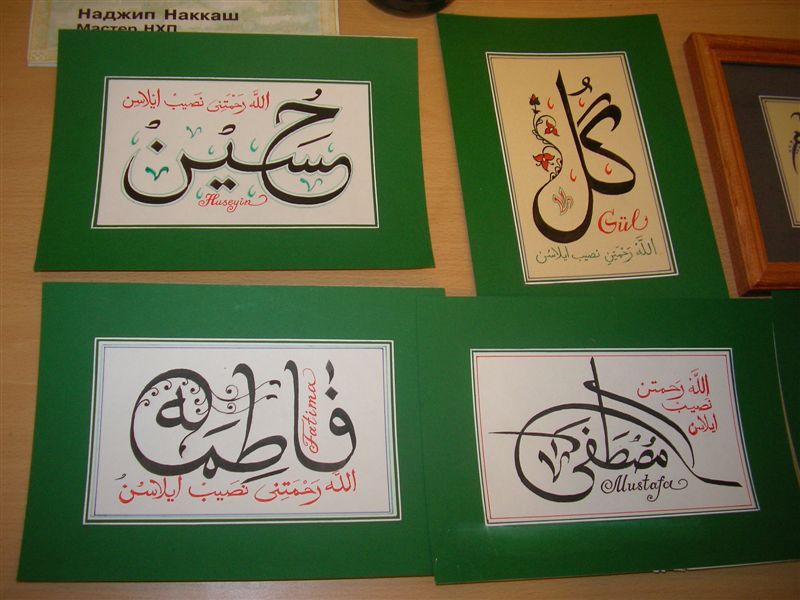 Наджип Наккаш
Мастер НХП
الله رَحْمَتِنى نَصيبْ ايْلاسن
حُسَيْنْ
Huseyin
كُل
Gül
الله رَحْمَتِنِ نصيب ايلاسن
فاطِمَه
Fatima
الله رَحْمَتِنى نَصيبْ ايلاسُن
اللّٰه رحمتن
نصيب
ايلاسن
مُصْطَفى
Mustafa